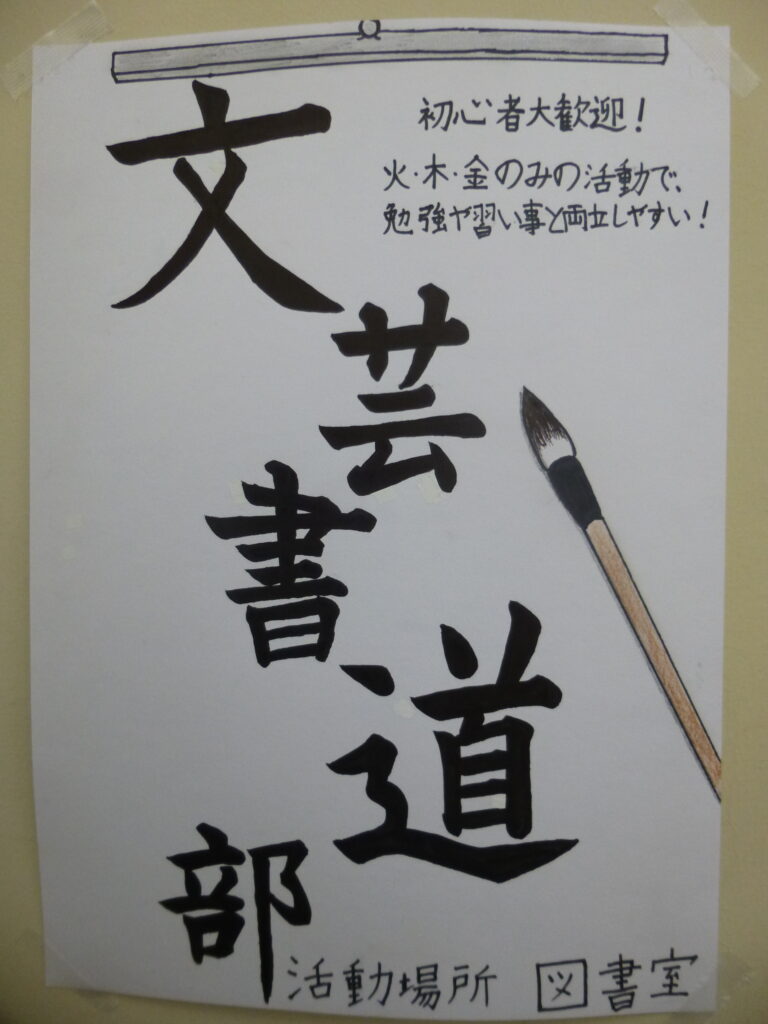 文芸書道部
初心者大歓迎！
火・木・金のみの活動で、
勉強や習い事と両立しやすい！
活動場所 図書室